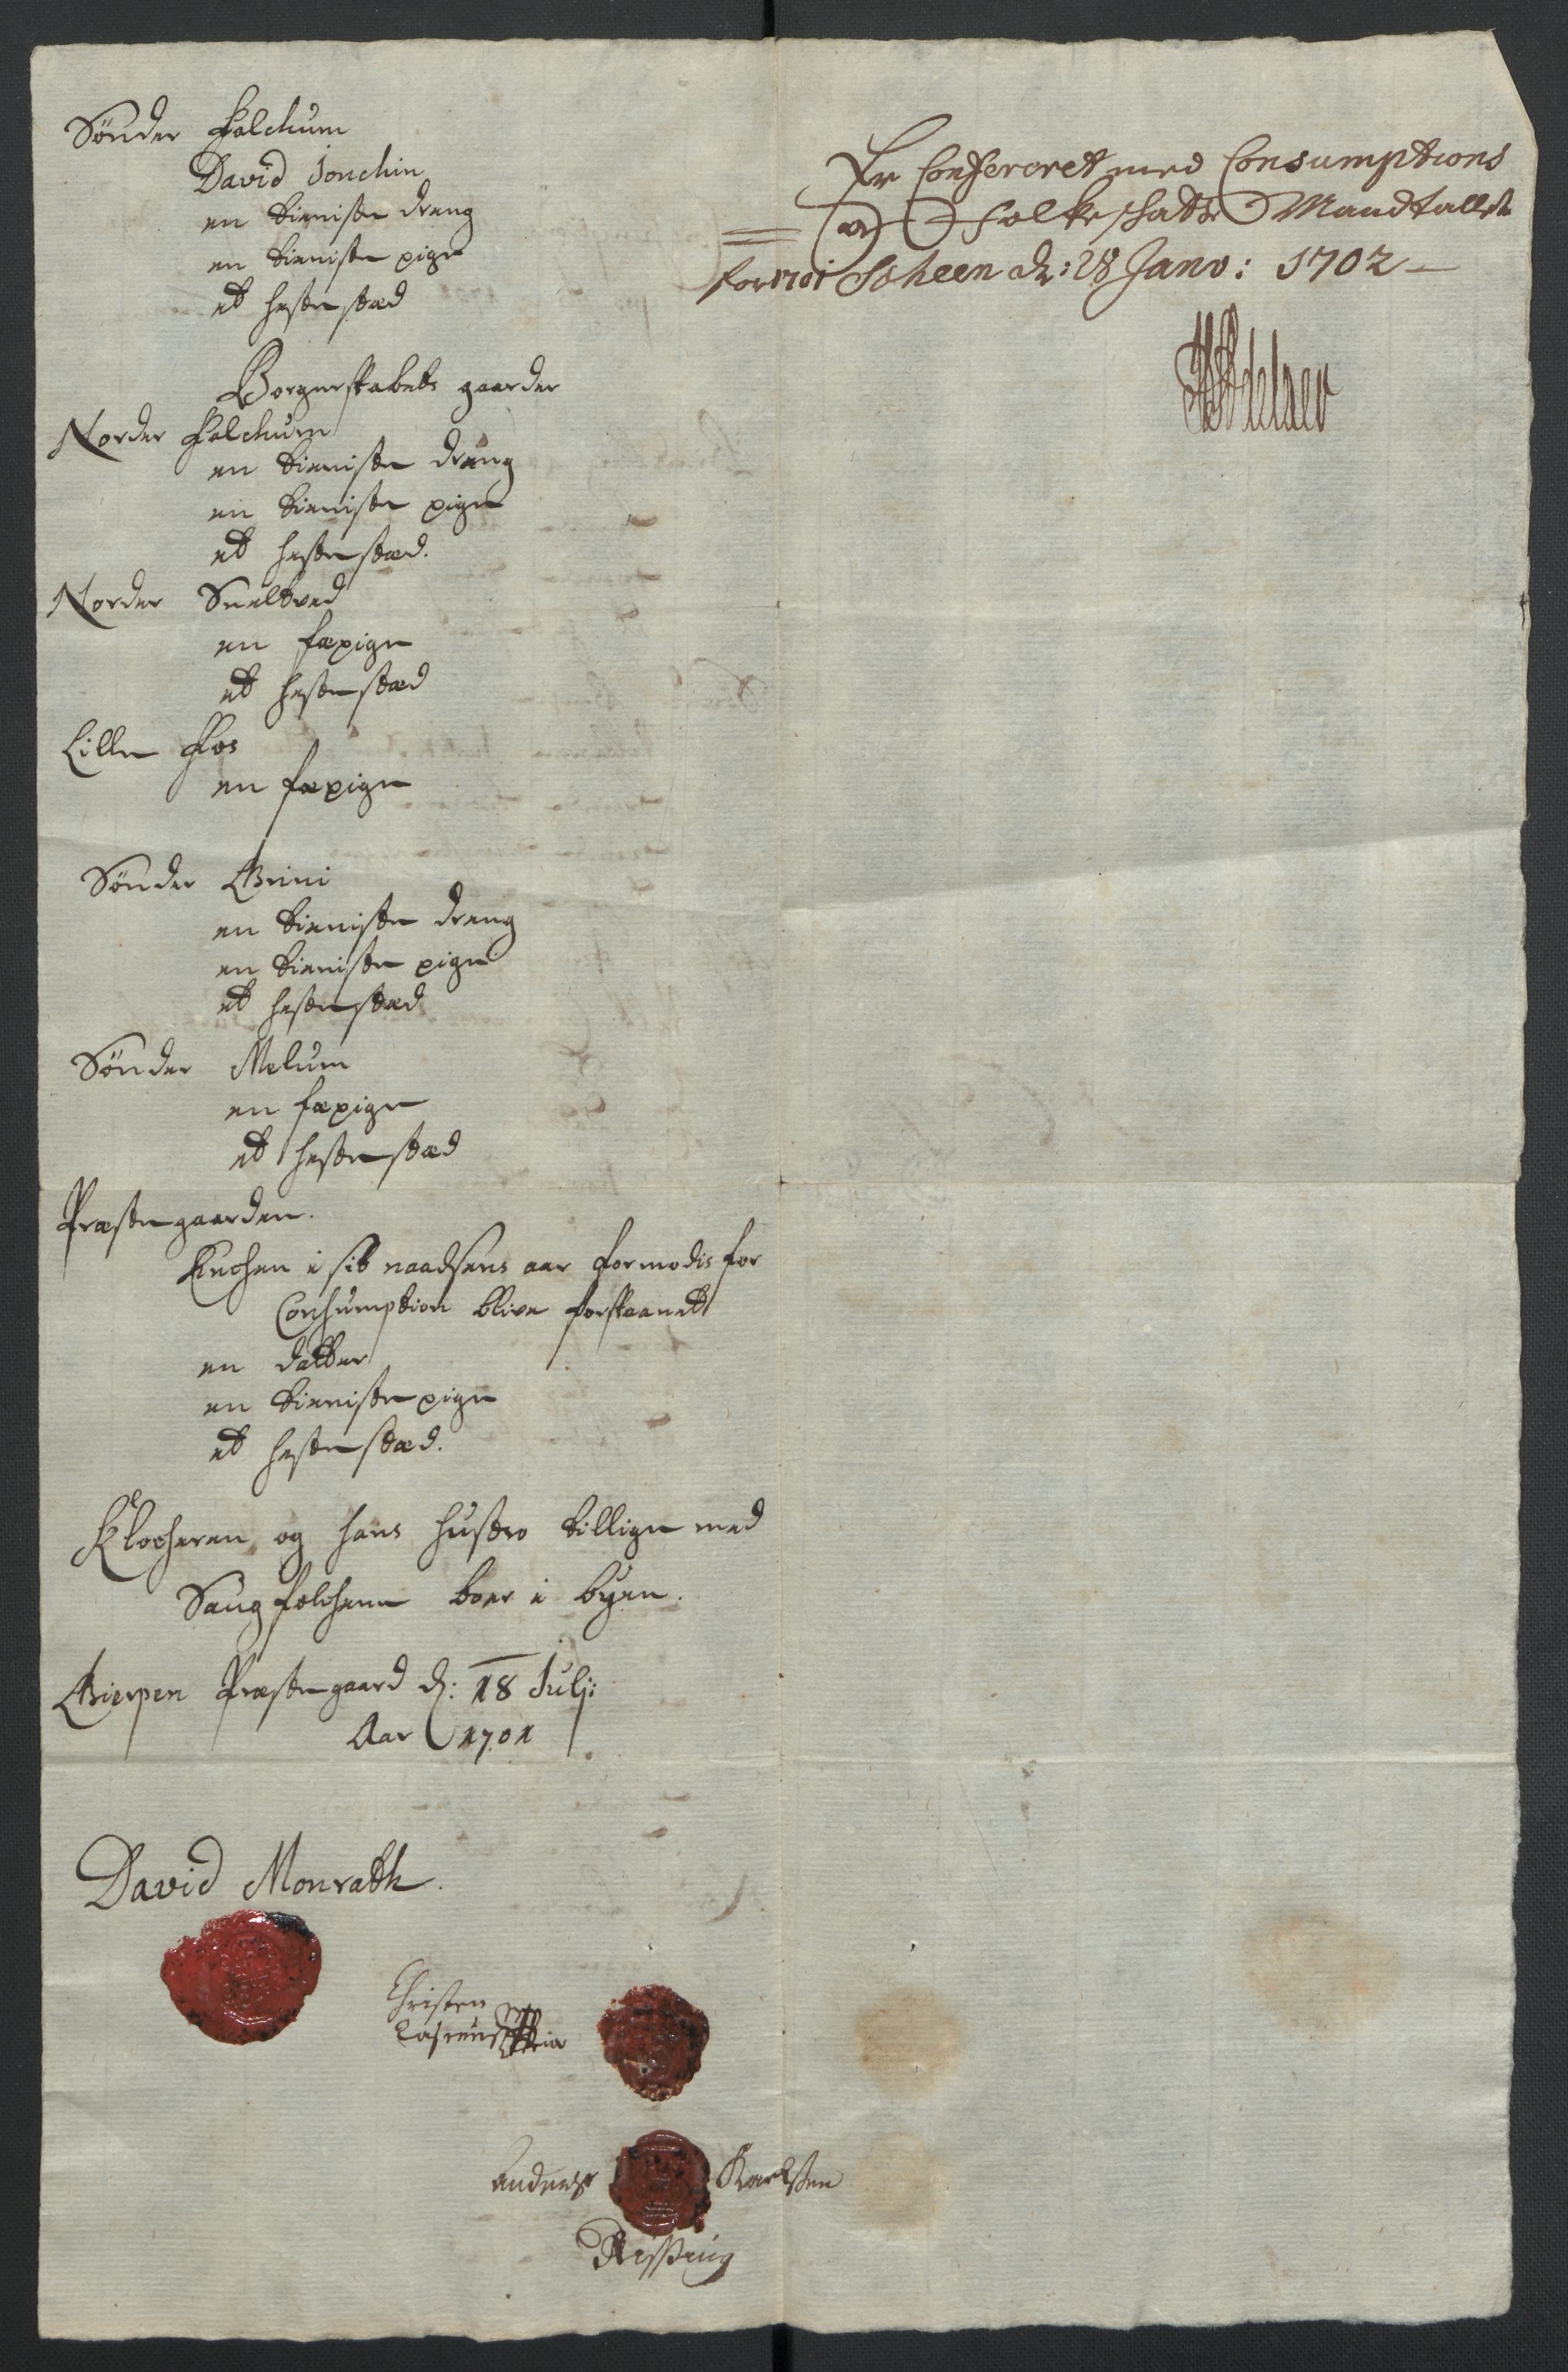 Sönder Falchum
David Jonchin
en tieniste dreng
en tieniste pige
et hestestæd
Borgerskabets gaarder
Norder Falchum
en tieniste dreng
en tieniste pige
et hestestæd.
Norder Sneltved
en fæpige
et hestestæd
Lille Fos
en fæpige
Sönder Grini
en tieniste dreng
en tieniste pige
et hestestæd
Sönder Melum
en fæpige
et hestestæd
Præstegaarden.
Enchen i sit naadsens aar formodis for
Conshumption blive forskaanet
en datter
en tieniste pige
et hestestæd.
Klocheren og hans hustro tillige med
Saugfolchene boer i byen.
Gierpen Præstegaard d: 18 Julji
Aar 1701
David Monrath.
Christen
Anders Karlsen
Rissing
Er Confereret med Consumptions
og Folke schatte Mandtallet
for 1701 Scheen d: 28 Janv: 1702